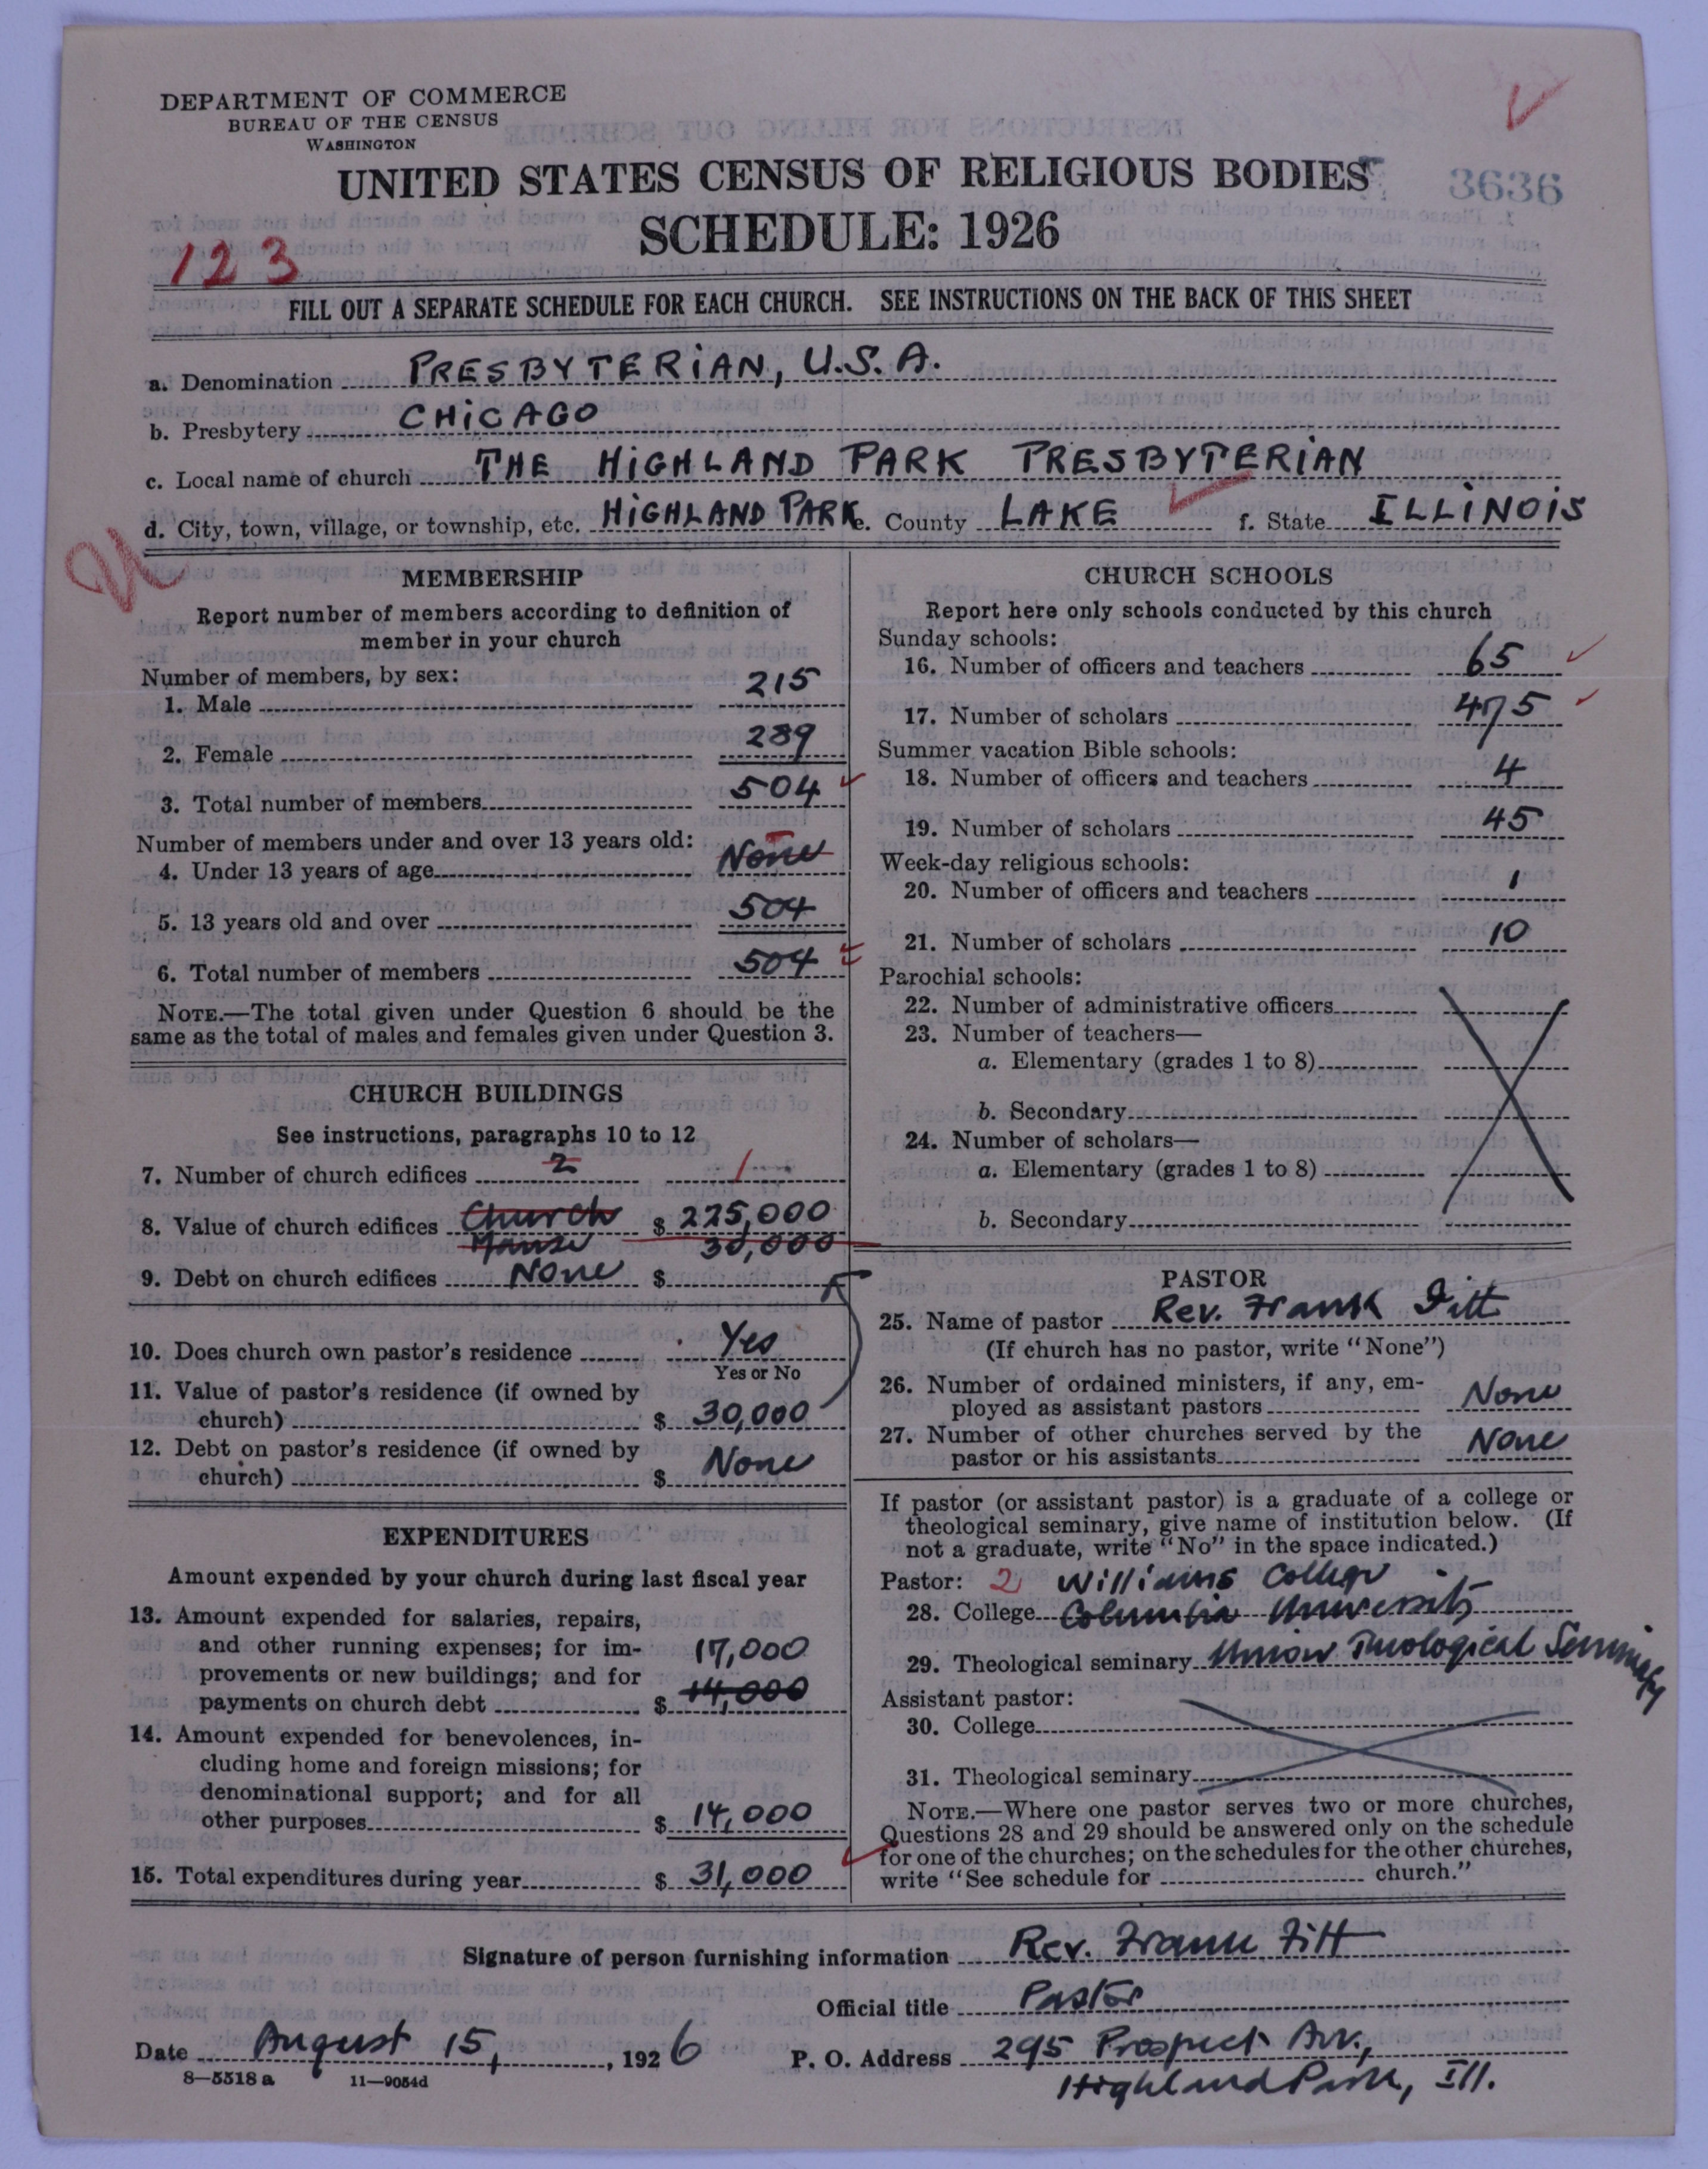 DEPARTMENT OF COMMERCE
BUREAU OF THE CENSUS
WASHINGTON
UNITED STATES CENSUS OF RELIGIOUS BODIES
3636
SCHEDULE: 1926
123
FILL OUT A SEPARATE SCHEDULE FOR EACH CHURCH. SEE INSTRUCTIONS ON THE BACK OF THIS SHEET
a. Denomination PRESBYTERIAN, U.S.A.
b. Presbytery CHICAGO
c. Local name of church THE HIGHLAND PARK PRESBYTERIAN
d. City, town, village, or township, etc. HIGHLAND PARK e. County LAKE f. State ILLINOIS
MEMBERSHIP
Report number of members according to definition of
member in your church
Number of members, by sex:
1. Male 215
2. Female 289
3. Total number of members 504
Number of members under and over 13 years old:
4. Under 13 years of age None
5. 13 years old and over 504
6. Total number of members 504
NOTE.—The total given under Question 6 should be the
same as the total of males and females given under Question 3.
CHURCH BUILDINGS
See instructions, paragraphs 10 to 12
7. Number of church edifices 2 1
8. Value of church edifices Church $ 225,000
Manse 30,000
9. Debt on church edifices None $
10. Does church own pastor's residence Yes
Yes or No
11. Value of pastor's residence (if owned by
church) $ 30,000
12. Debt on pastor's residence (if owned by
church) $ None
EXPENDITURES
Amount expended by your church during last fiscal year
13. Amount expended for salaries, repairs,
and other running expenses; for im-
provements or new buildings; and for 17,000
payments on church debt $ 14,000
14. Amount expended for benevolences, in-
cluding home and foreign missions; for
denominational support; and for all
other purposes $ 14,000
15. Total expenditures during year $ 31,000
CHURCH SCHOOLS
Report here only schools conducted by this church
Sunday schools:
16. Number of officers and teachers 65
17. Number of scholars 475
Summer vacation Bible schools:
18. Number of officers and teachers 4
19. Number of scholars 45
Week-day religious schools:
20. Number of officers and teachers 1
21. Number of scholars 10
Parochial schools:
22. Number of administrative officers
23. Number of teachers—
a. Elementary (grades 1 to 8)
b. Secondary
24. Number of scholars—
a. Elementary (grades 1 to 8)
b. Secondary
PASTOR
25. Name of pastor Rev. Frank Fitt
(If church has no pastor, write "None")
26. Number of ordained ministers, if any, em-
ployed as assistant pastors None
27. Number of other churches served by the
pastor or his assistants None
If pastor (or assistant pastor) is a graduate of a college or
theological seminary, give name of institution below. (If
not a graduate, write "No" in the space indicated.)
Pastor: 2 Williams College
28. College Columbia University
29. Theological seminary Union Theological Seminary
Assistant pastor:
30. College
31. Theological seminary
NOTE.—Where one pastor serves two or more churches,
Questions 28 and 29 should be answered only on the schedule
for one of the churches; on the schedules for the other churches,
write "See schedule for church."
Signature of person furnishing information Rev. Frank Fitt
Official title Pastor
Date August 15, 1926 P. O. Address 295 Prospect Av.,
8—5518 a 11—9054d Highland Park, Ill.